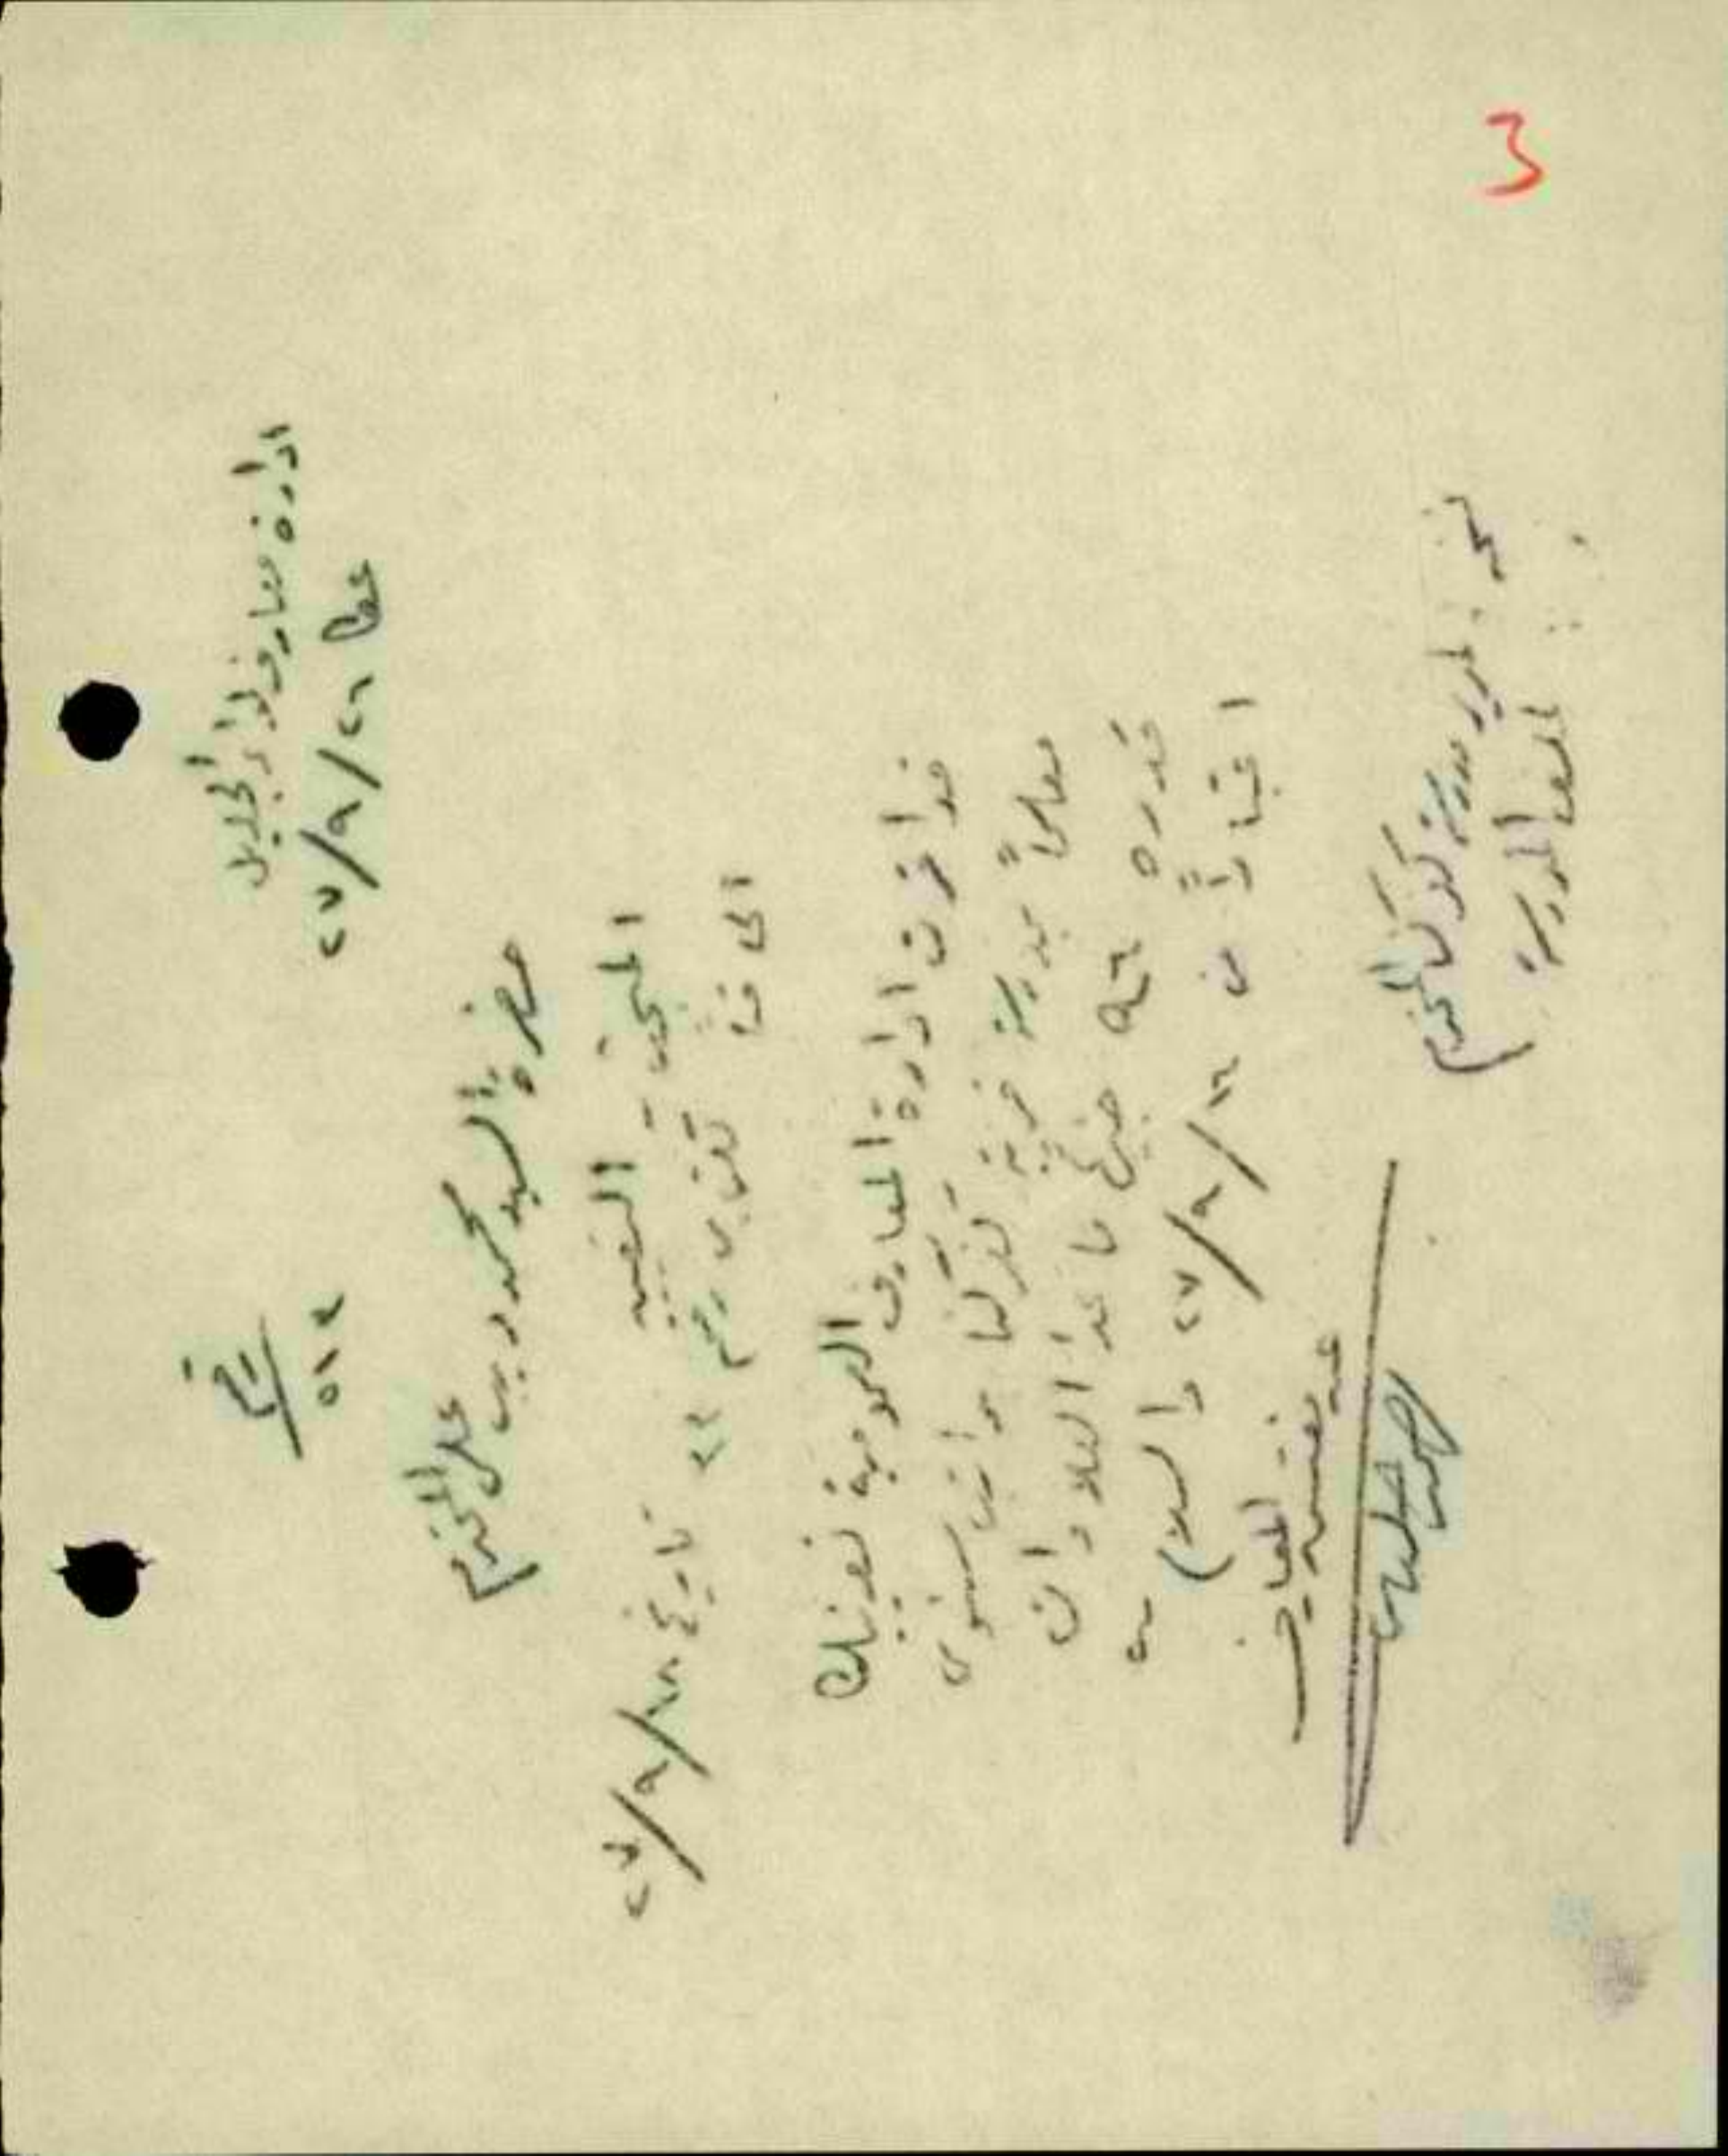 ادارة معارف لواء الجليل
عكا ٢٦/٩/٢٧
نمرة
٥١٤
حضرة السيد محمود ديب علي المحترم
المبحث - التعيين
الحاقاً لكتابي رقم ٢٣ تاريخ ١٨/٩/٢٧
قد اقرت ادارة المعارف العمومية تعيينك
معلماً بمدرسة قرية براتب سنوي
قدره ٩٦ جنيهاً ما عدا العلاوات
اعتباراً من ١٦/٩/٢٧ والسلام
عن مفتش المعارف
نسخة: لمدير مدرسة المحترم
لملف المدرسة
3